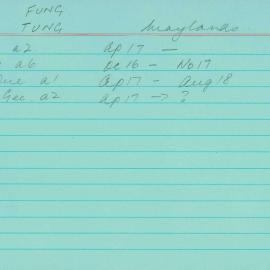 FUNG
TUNG Maylands
a2 ap 17 —
a6 De 16 - No 17
a1 Ap 17 - Aug 18
Gee a2 ap 17 → ?